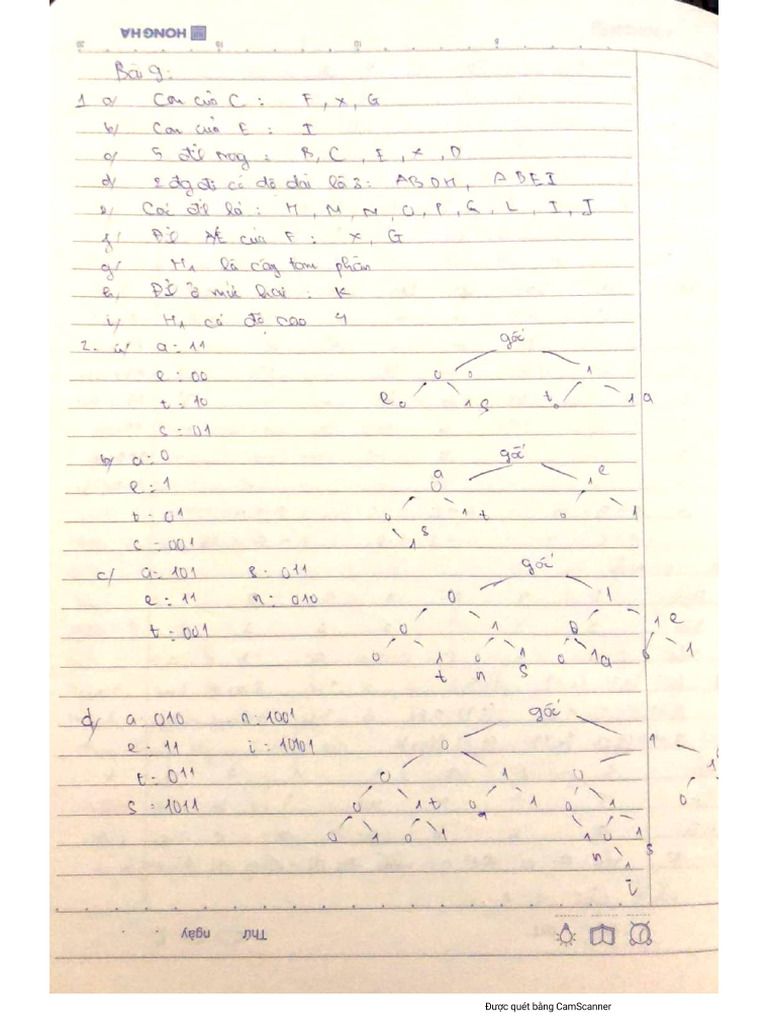 HONG HA
Bài 9:
1 a/ Con của C : F, X, G
b/ Con của E : I
c/ 5 đỉ trog : B, C, E, X, D
d/ 2 đg đi có độ dài là 3: ABDH, ABEI
e/ Các đỉ lá : H, M, N, O, P, G, L, I, J
f/ của F : X, G
g/ H1 là cây tam phân
h/ Đỉ ở mức hai : K
i/ H1 có độ cao 4
2. a/ a: 11
e: 00
t: 10
s: 01
gốc
0 0 1
e 0 1 s t 0 1 a
b/ a: 0
e: 1
t: 01
s: 001
gốc
a e
0 1
0 1 t 0 1
s
1
c/ a: 101 s: 011
e: 11 n: 010
t: 001
gốc
0 1
0 1 0 1 e
0 1 0 1 0 1 a 0 1
t n s
d/ a: 010 n: 1001
e: 11 i: 10101
t: 011
s: 1011
gốc
0 1
0 1 0 1
0 1 t 0 1 0 1 0
0 1 0 1 1 0 1 s
n 1
i
Thứ
ngày
Được quét bằng CamScanner